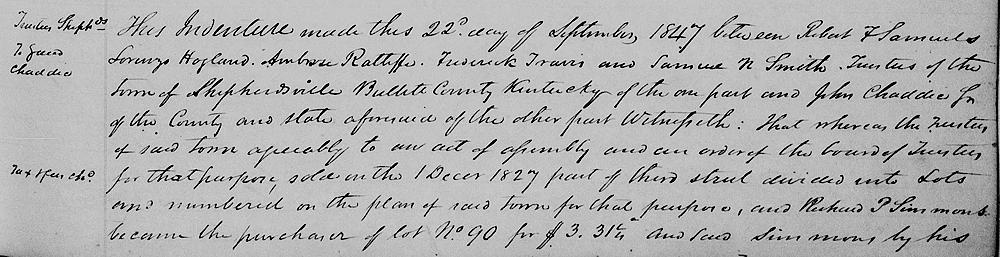 Trustees Shephds
To Deed
Chaddic
Tax & fees chd.
This Indenture made this 22d. day of September, 1847 between Robert F Samuels
Lorenzo Hogland. Ambrose Ratliffe. Frederick Travis and Samuel N Smith. Trustees of the
town of Shepherdsville Bullitt County Kentucky of the one part and John Chaddic Jr
of the County and state aforesaid of the other part Witnesseth: That whereas the Trustees
of said town agreeably to an act of assembly and an order of the board of Trustees
for that purpose, sold on the 1 Decer 1827 part of third street divided into Lots
and numbered on the plan of said town for that purpose, and Richard P Simmons
became the purchaser of lot No. 90 for $ 3. 31 and said Simmons by his